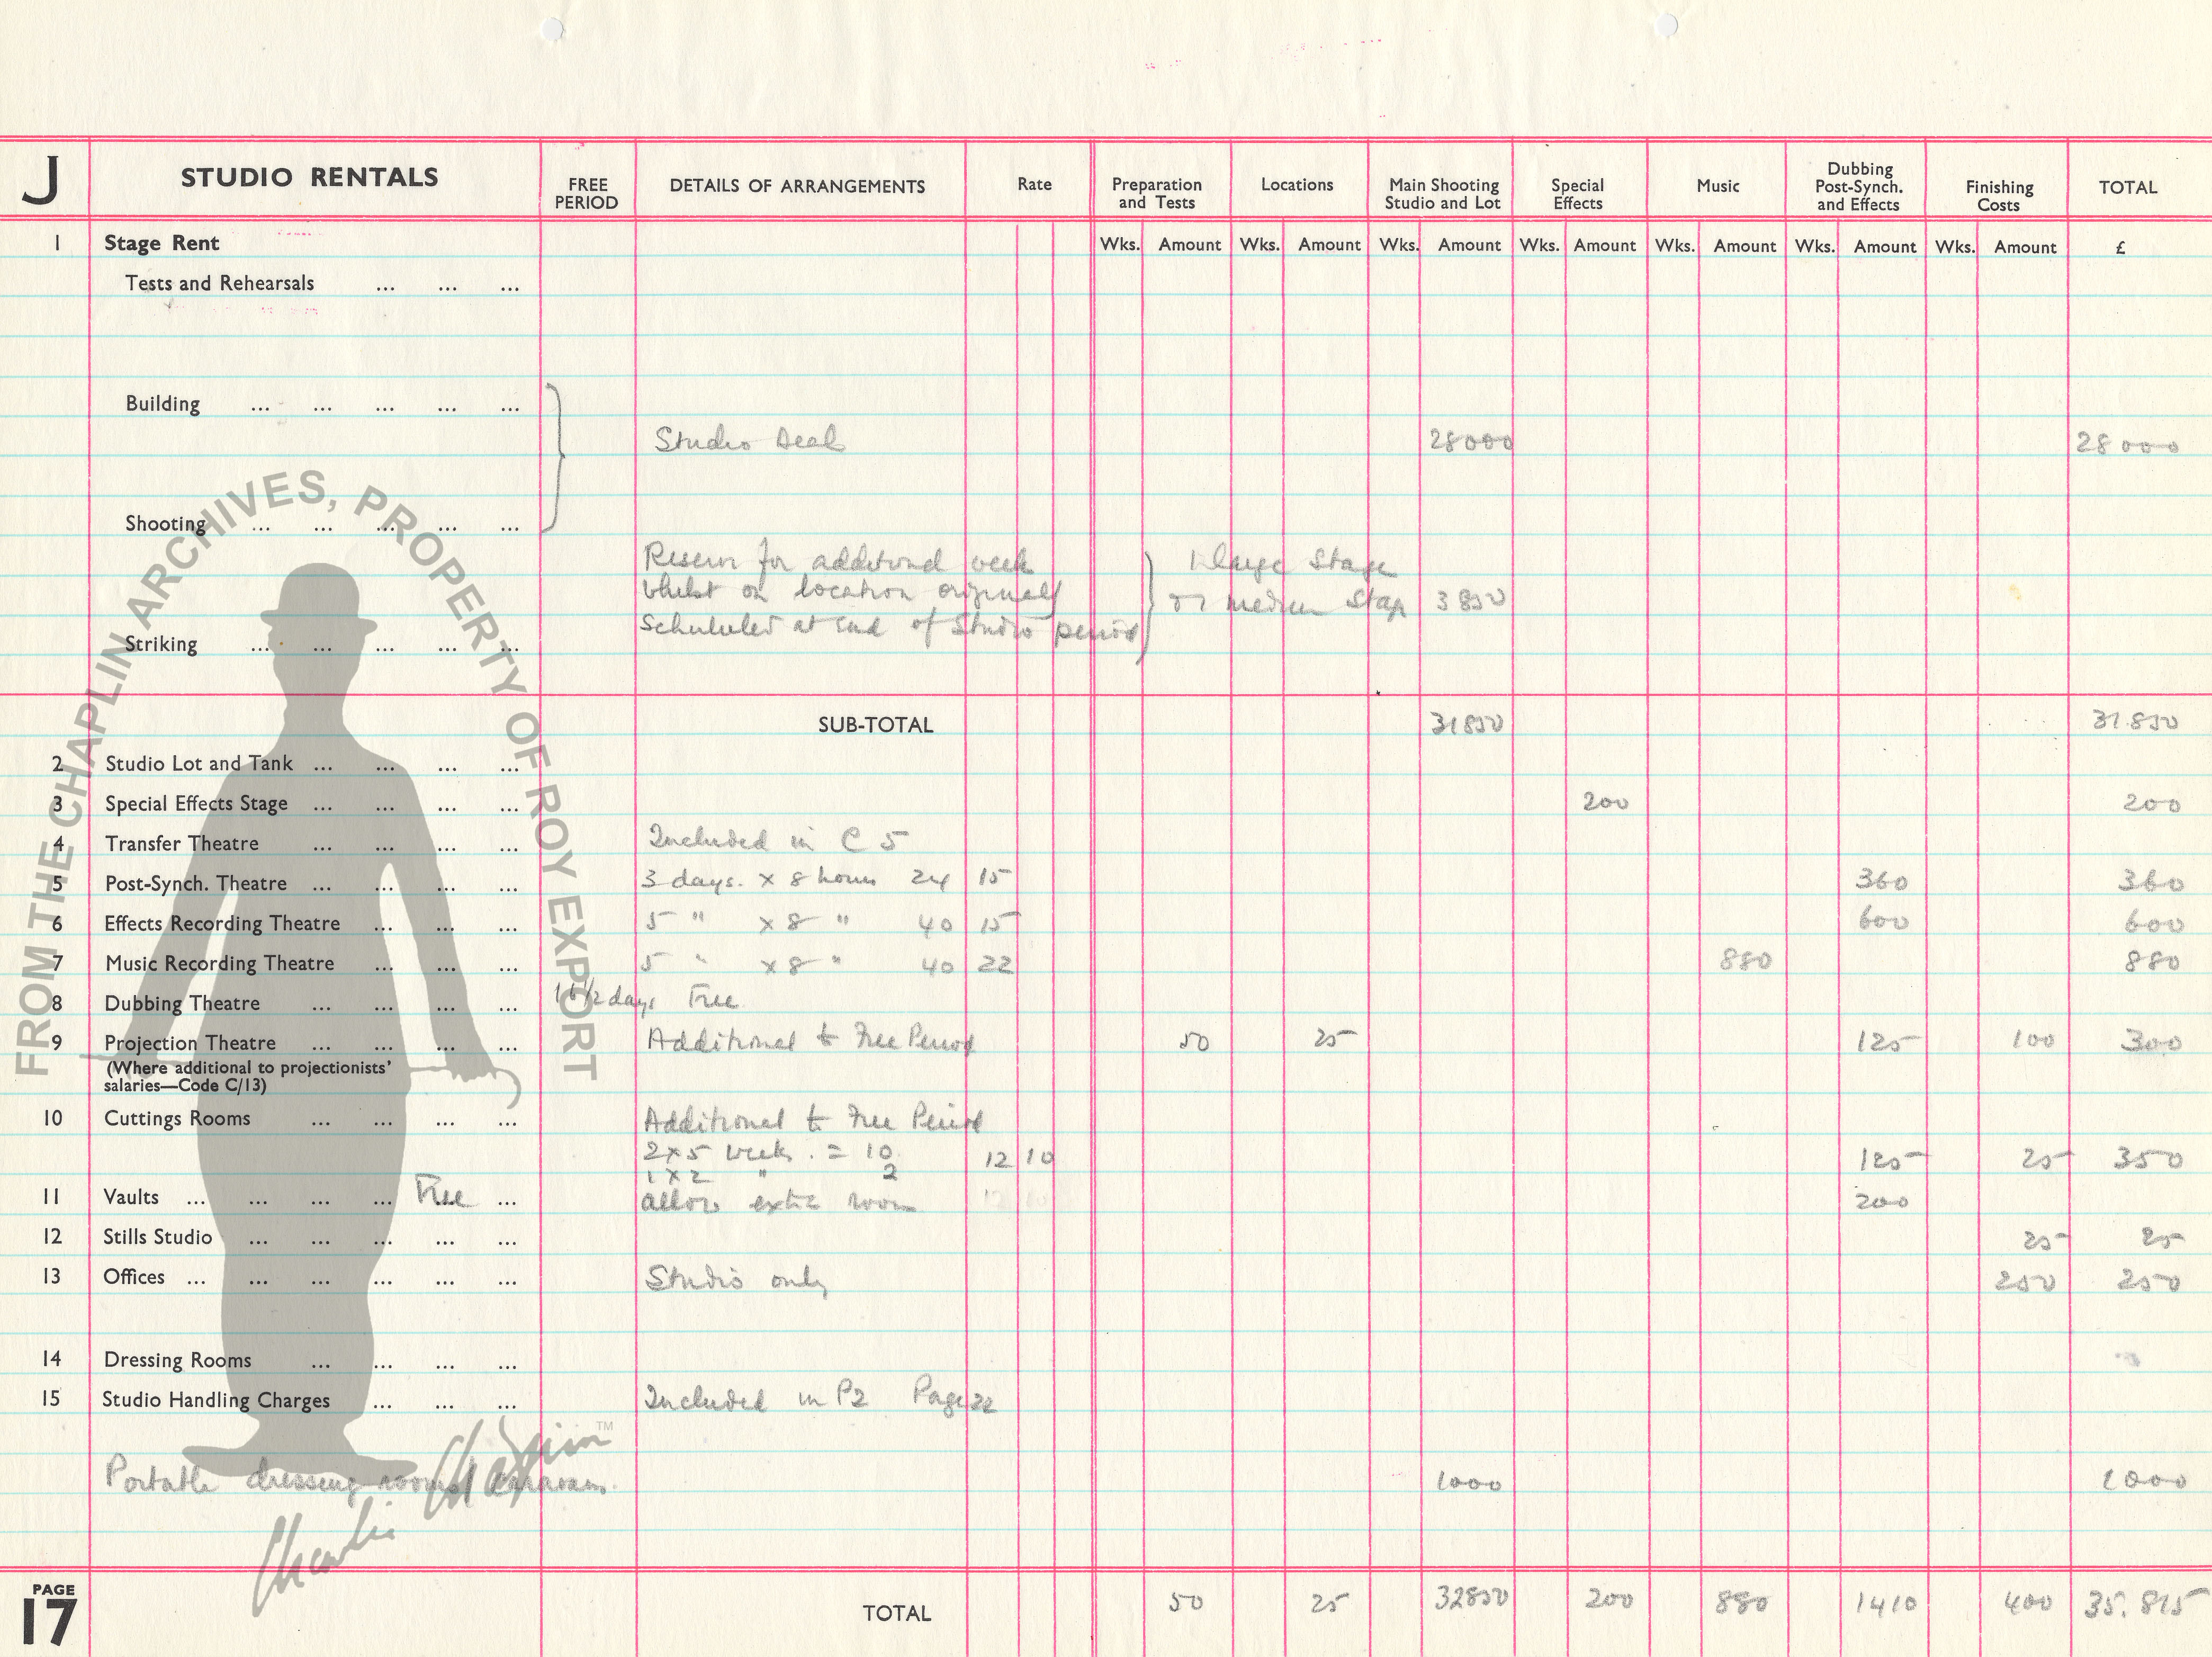 J STUDIO RENTALS FREE PERIOD DETAILS OF ARRANGEMENTS Rate Preparation and Tests Locations Main Shooting Studio and Lot Special Effects Music Dubbing Post-Synch. and Effects Finishing Costs TOTAL
1 Stage Rent Wks. Amount Wks. Amount Wks. Amount Wks. Amount Wks. Amount Wks. Amount Wks. Amount £
Tests and Rehearsals ... ... ...
Building ... ... ... ... ...
Studio Deal 28000 28000
Shooting ... ... ... ... ...
Reserve for additional week 1 large Stage
Whilst on location originally or medium Stage 3850
Scheduled at end of Studio period
Striking ... ... ... ... ...
SUB-TOTAL 31850 31.850
2 Studio Lot and Tank ... ... ... ...
3 Special Effects Stage ... ... ... ... 200 200
4 Transfer Theatre ... ... ... ... Included in C 5
5 Post-Synch. Theatre ... ... ... ... 3 days. x 8 hours 24 15 360 360
6 Effects Recording Theatre ... ... ... 5 " x 8 " 40 15 600 600
7 Music Recording Theatre ... ... ... 5 " x 8 " 40 22 880 880
8 Dubbing Theatre ... ... ... ... days Free
9 Projection Theatre ... ... ... ... Additional to Free Period 50 25 125 100 300
(Where additional to projectionists'
salaries—Code C/13)
10 Cuttings Rooms ... ... ... ... Additional to Free Period
2 x 5 week . = 10 12 10 125 25 350
1 x 2 " 2
11 Vaults ... ... ... ... Free ... allow extra room 200
12 Stills Studio ... ... ... ... ... 25 25
13 Offices ... ... ... ... ... ... Studio only 250 250
14 Dressing Rooms ... ... ... ...
15 Studio Handling Charges ... ... ... Included in P2 Page 22
Portable dressing rooms caravans. 1000 1000
PAGE 17 TOTAL 50 25 32850 200 880 1410 400 35.815
FROM THE CHAPLIN ARCHIVES, PROPERTY OF ROY EXPORT
Charlie Chaplin TM